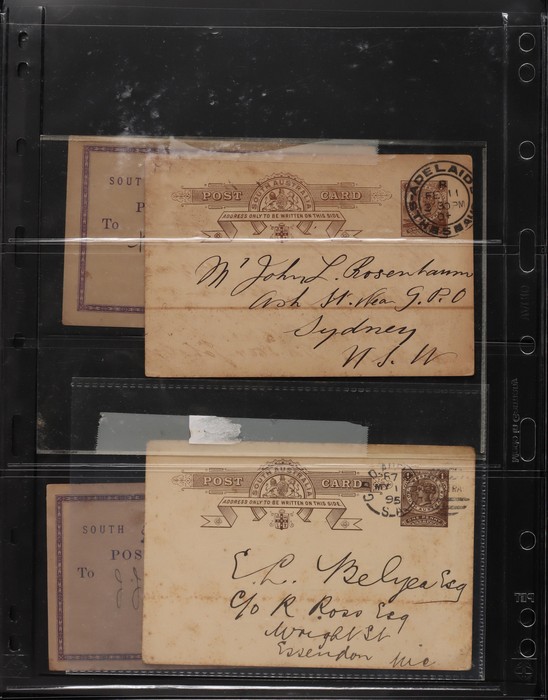 SOUTH
P
To
POST CARD
SOUTH AUSTRALIA
ADDRESS ONLY TO BE WRITTEN ON THIS SIDE.
ADELAIDE
11
PM
Mr John L. Rosenbaum
Ash St. Near G.P.O
Sydney
N. S. W
SOUTH
POS
To
POST CARD
SOUTH AUSTRALIA
ADDRESS ONLY TO BE WRITTEN ON THIS SIDE.
G.P.O.
95
E. L. Belyea Esq
C/o R Ross Esq
Wright St
Essendon Vic